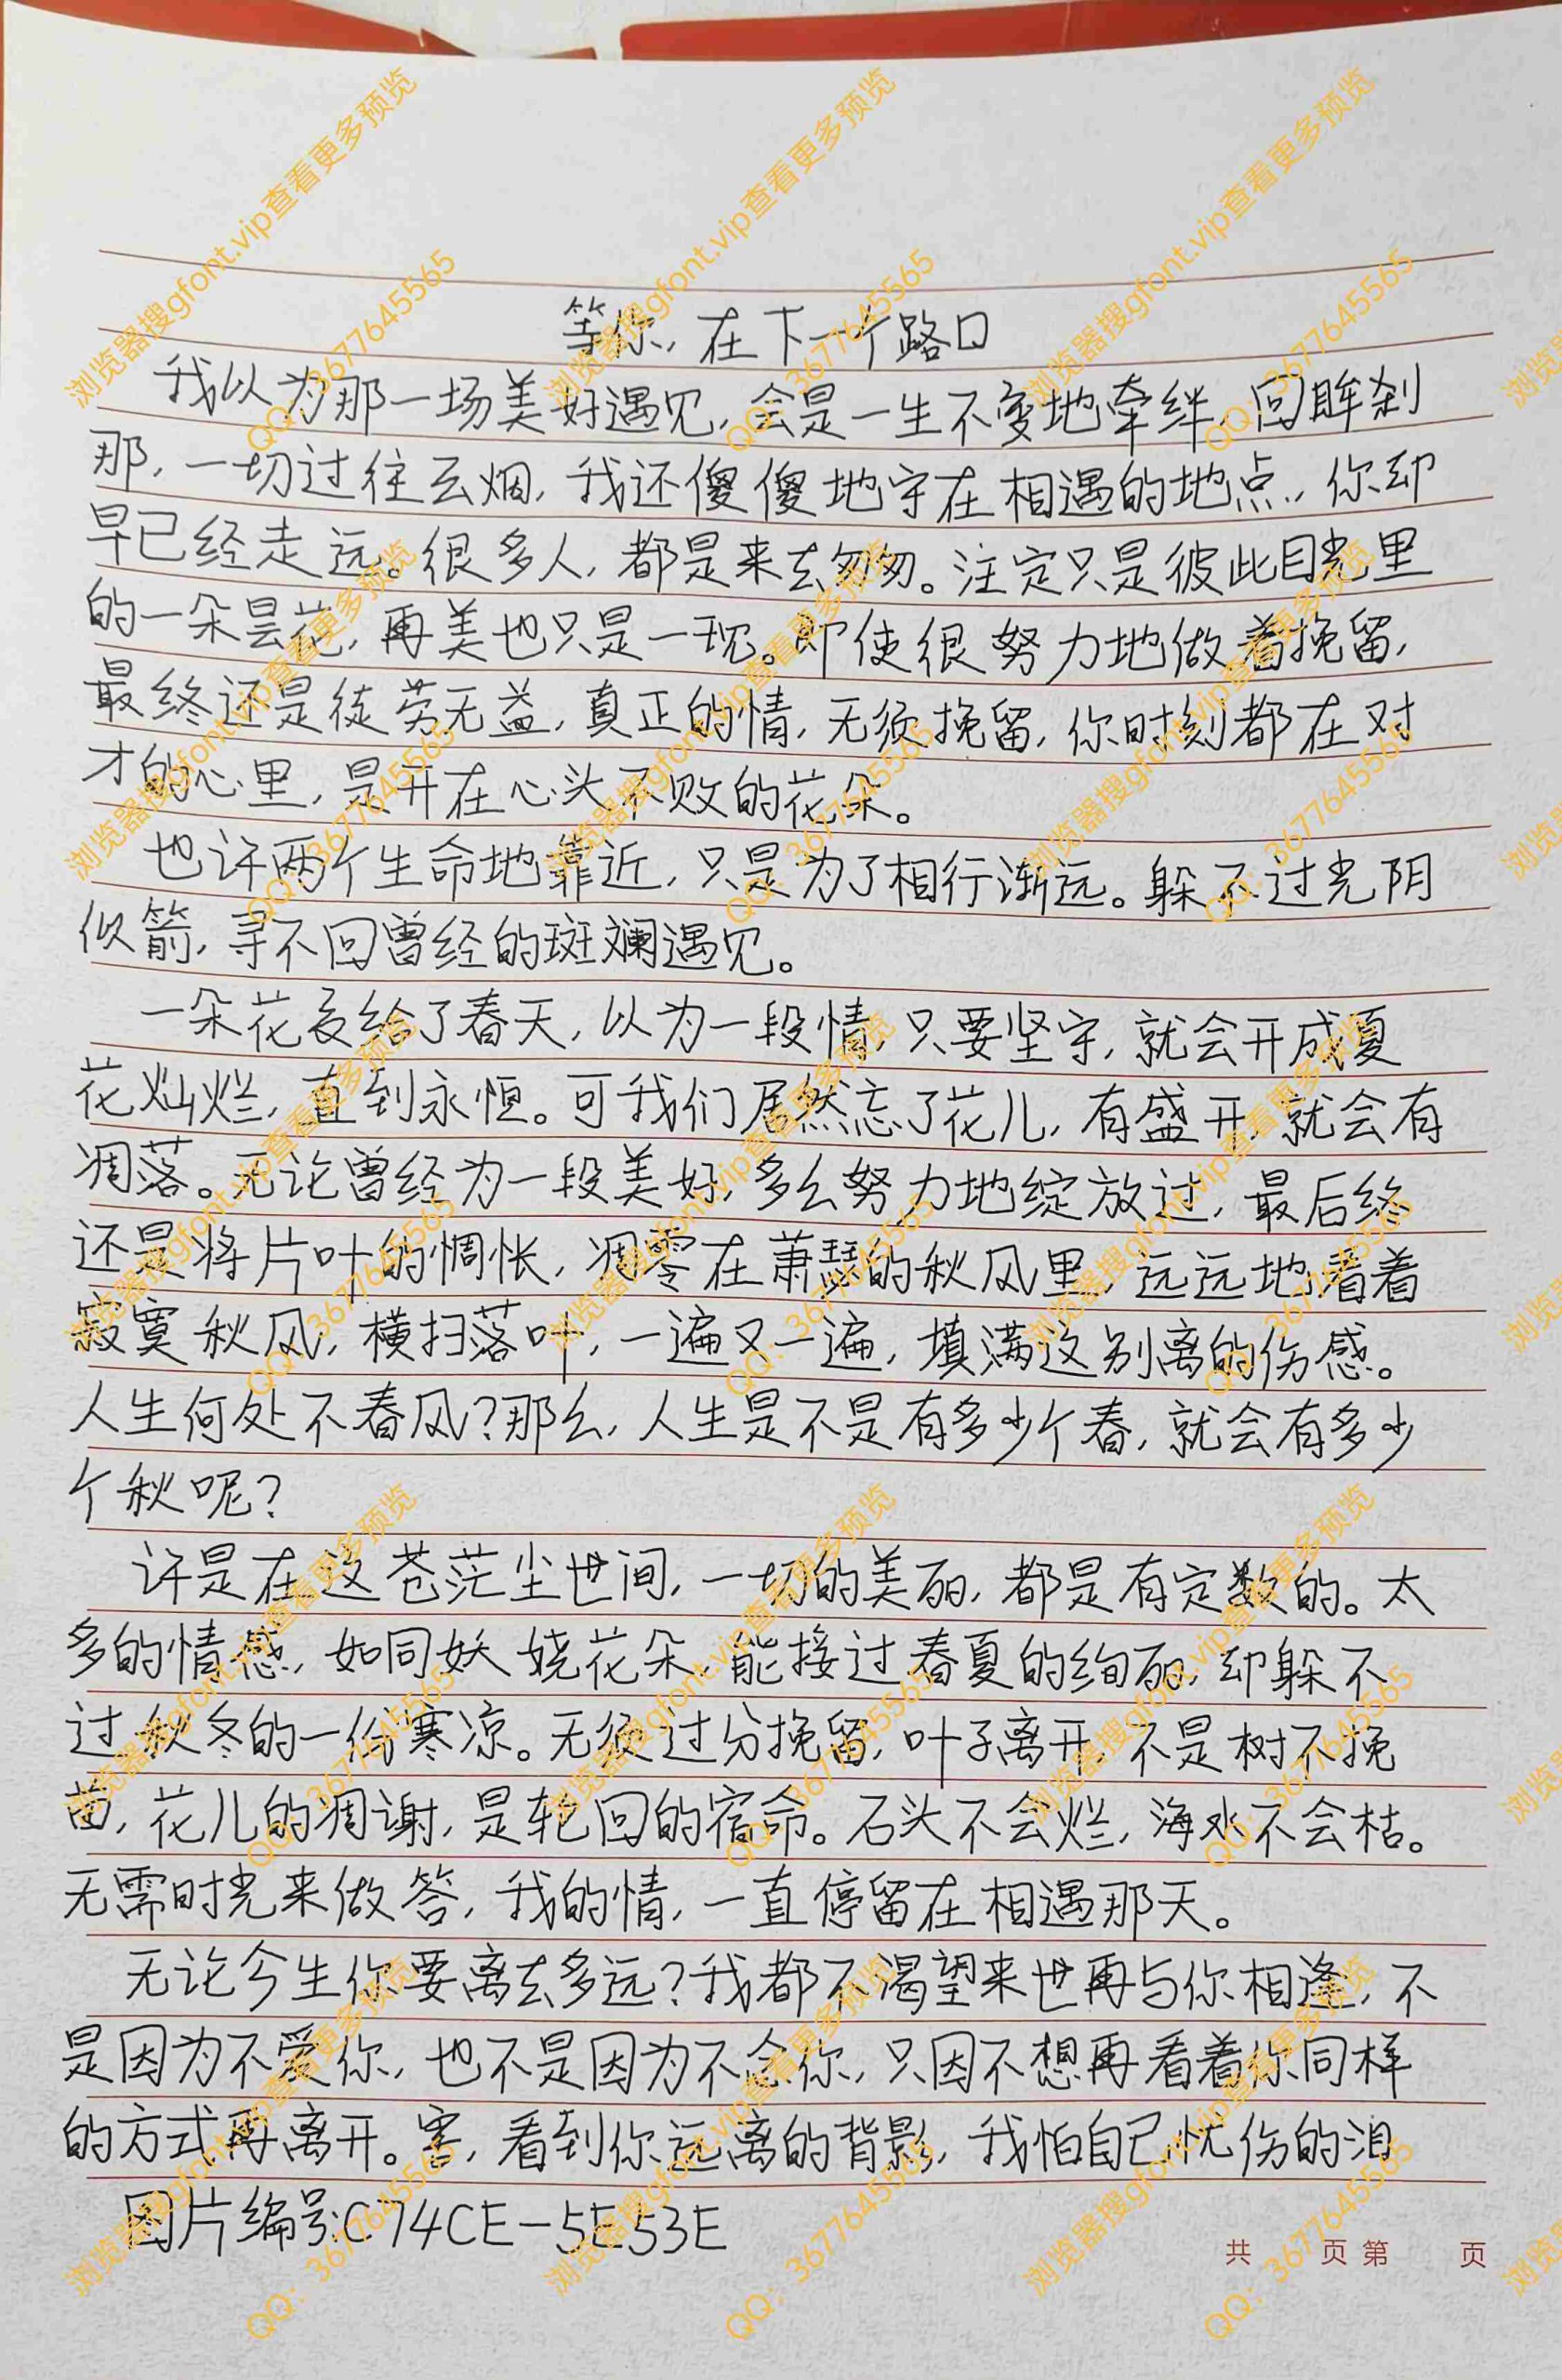 等你,在下一个路口
我以为那一场美好遇见,会是一生不变地牵绊,回眸刹
那,一切过往云烟,我还傻傻地守在相遇的地点,你却
早已经走远。很多人,都是来去匆匆。注定只是彼此目光里
的一朵昙花,再美也只是一现。即使很努力地做着挽留,
最终还是徒劳无益,真正的情,无须挽留,你时刻都在对
才的心里,是开在心头不败的花朵。
也许两个生命地靠近,只是为了相行渐远。躲不过光阴
似箭,寻不回曾经的斑斓遇见。
一朵花交给了春天,以为一段情,只要坚守,就会开成夏
花灿烂,直到永恒。可我们居然忘了花儿,有盛开,就会有
凋落。无论曾经为一段美好,多么努力地绽放过,最后终
还是将片叶的惆怅,凋零在萧瑟的秋风里,远远地看着
寂寞秋风,横扫落叶,一遍又一遍,填满这别离的伤感。
人生何处不春风?那么,人生是不是有多少个春,就会有多少
个秋呢?
许是在这苍茫尘世间,一切的美丽,都是有定数的。太
多的情感,如同妖娆花朵,能接过春夏的绚丽,却躲不
过秋冬的一份寒凉。无须过分挽留,叶子离开,不是树不挽
留,花儿的凋谢,是轮回的宿命。石头不会烂,海水不会枯。
无需时光来做答,我的情,一直停留在相遇那天。
无论今生你要离去多远?我都不渴望来世再与你相逢,不
是因为不爱你,也不是因为不念你,只因不想再看着你同样
的方式再离开。害,看到你远离的背影,我怕自己忧伤的泪
图片编号:C74CE-5E53E
共 页 第 页
浏览器搜gfont.vip查看更多预览
QQ:3677645565